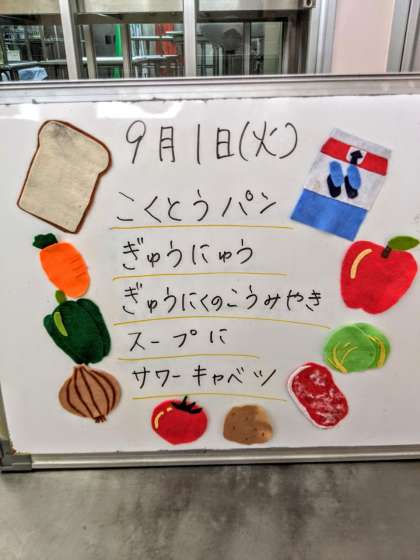 9月1日(火)
こくとうパン
ぎゅうにゅう
ぎゅうにくのこうみやき
スープに
サワーキャベツ